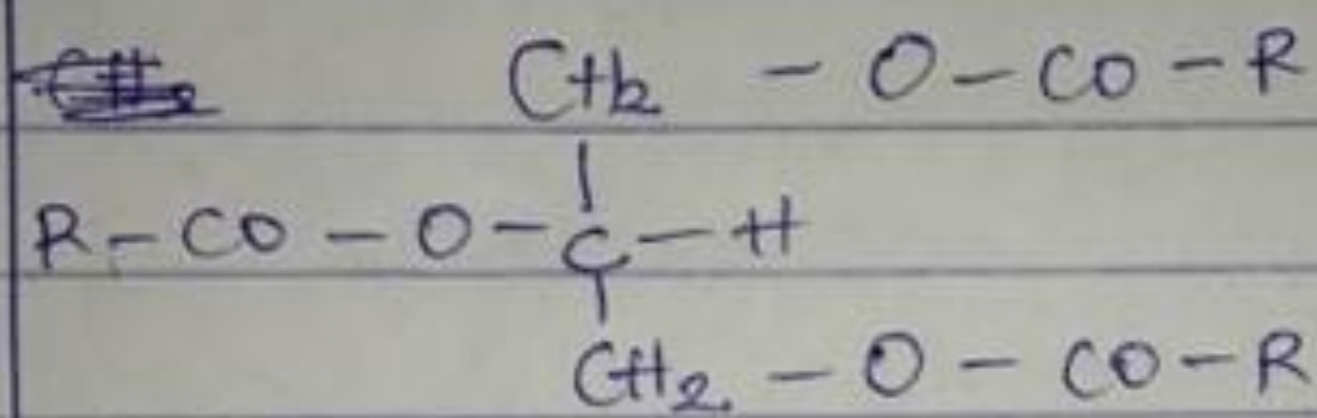 CH2 - O - CO - R
R - CO - O - C - H
CH2. - O - CO - R